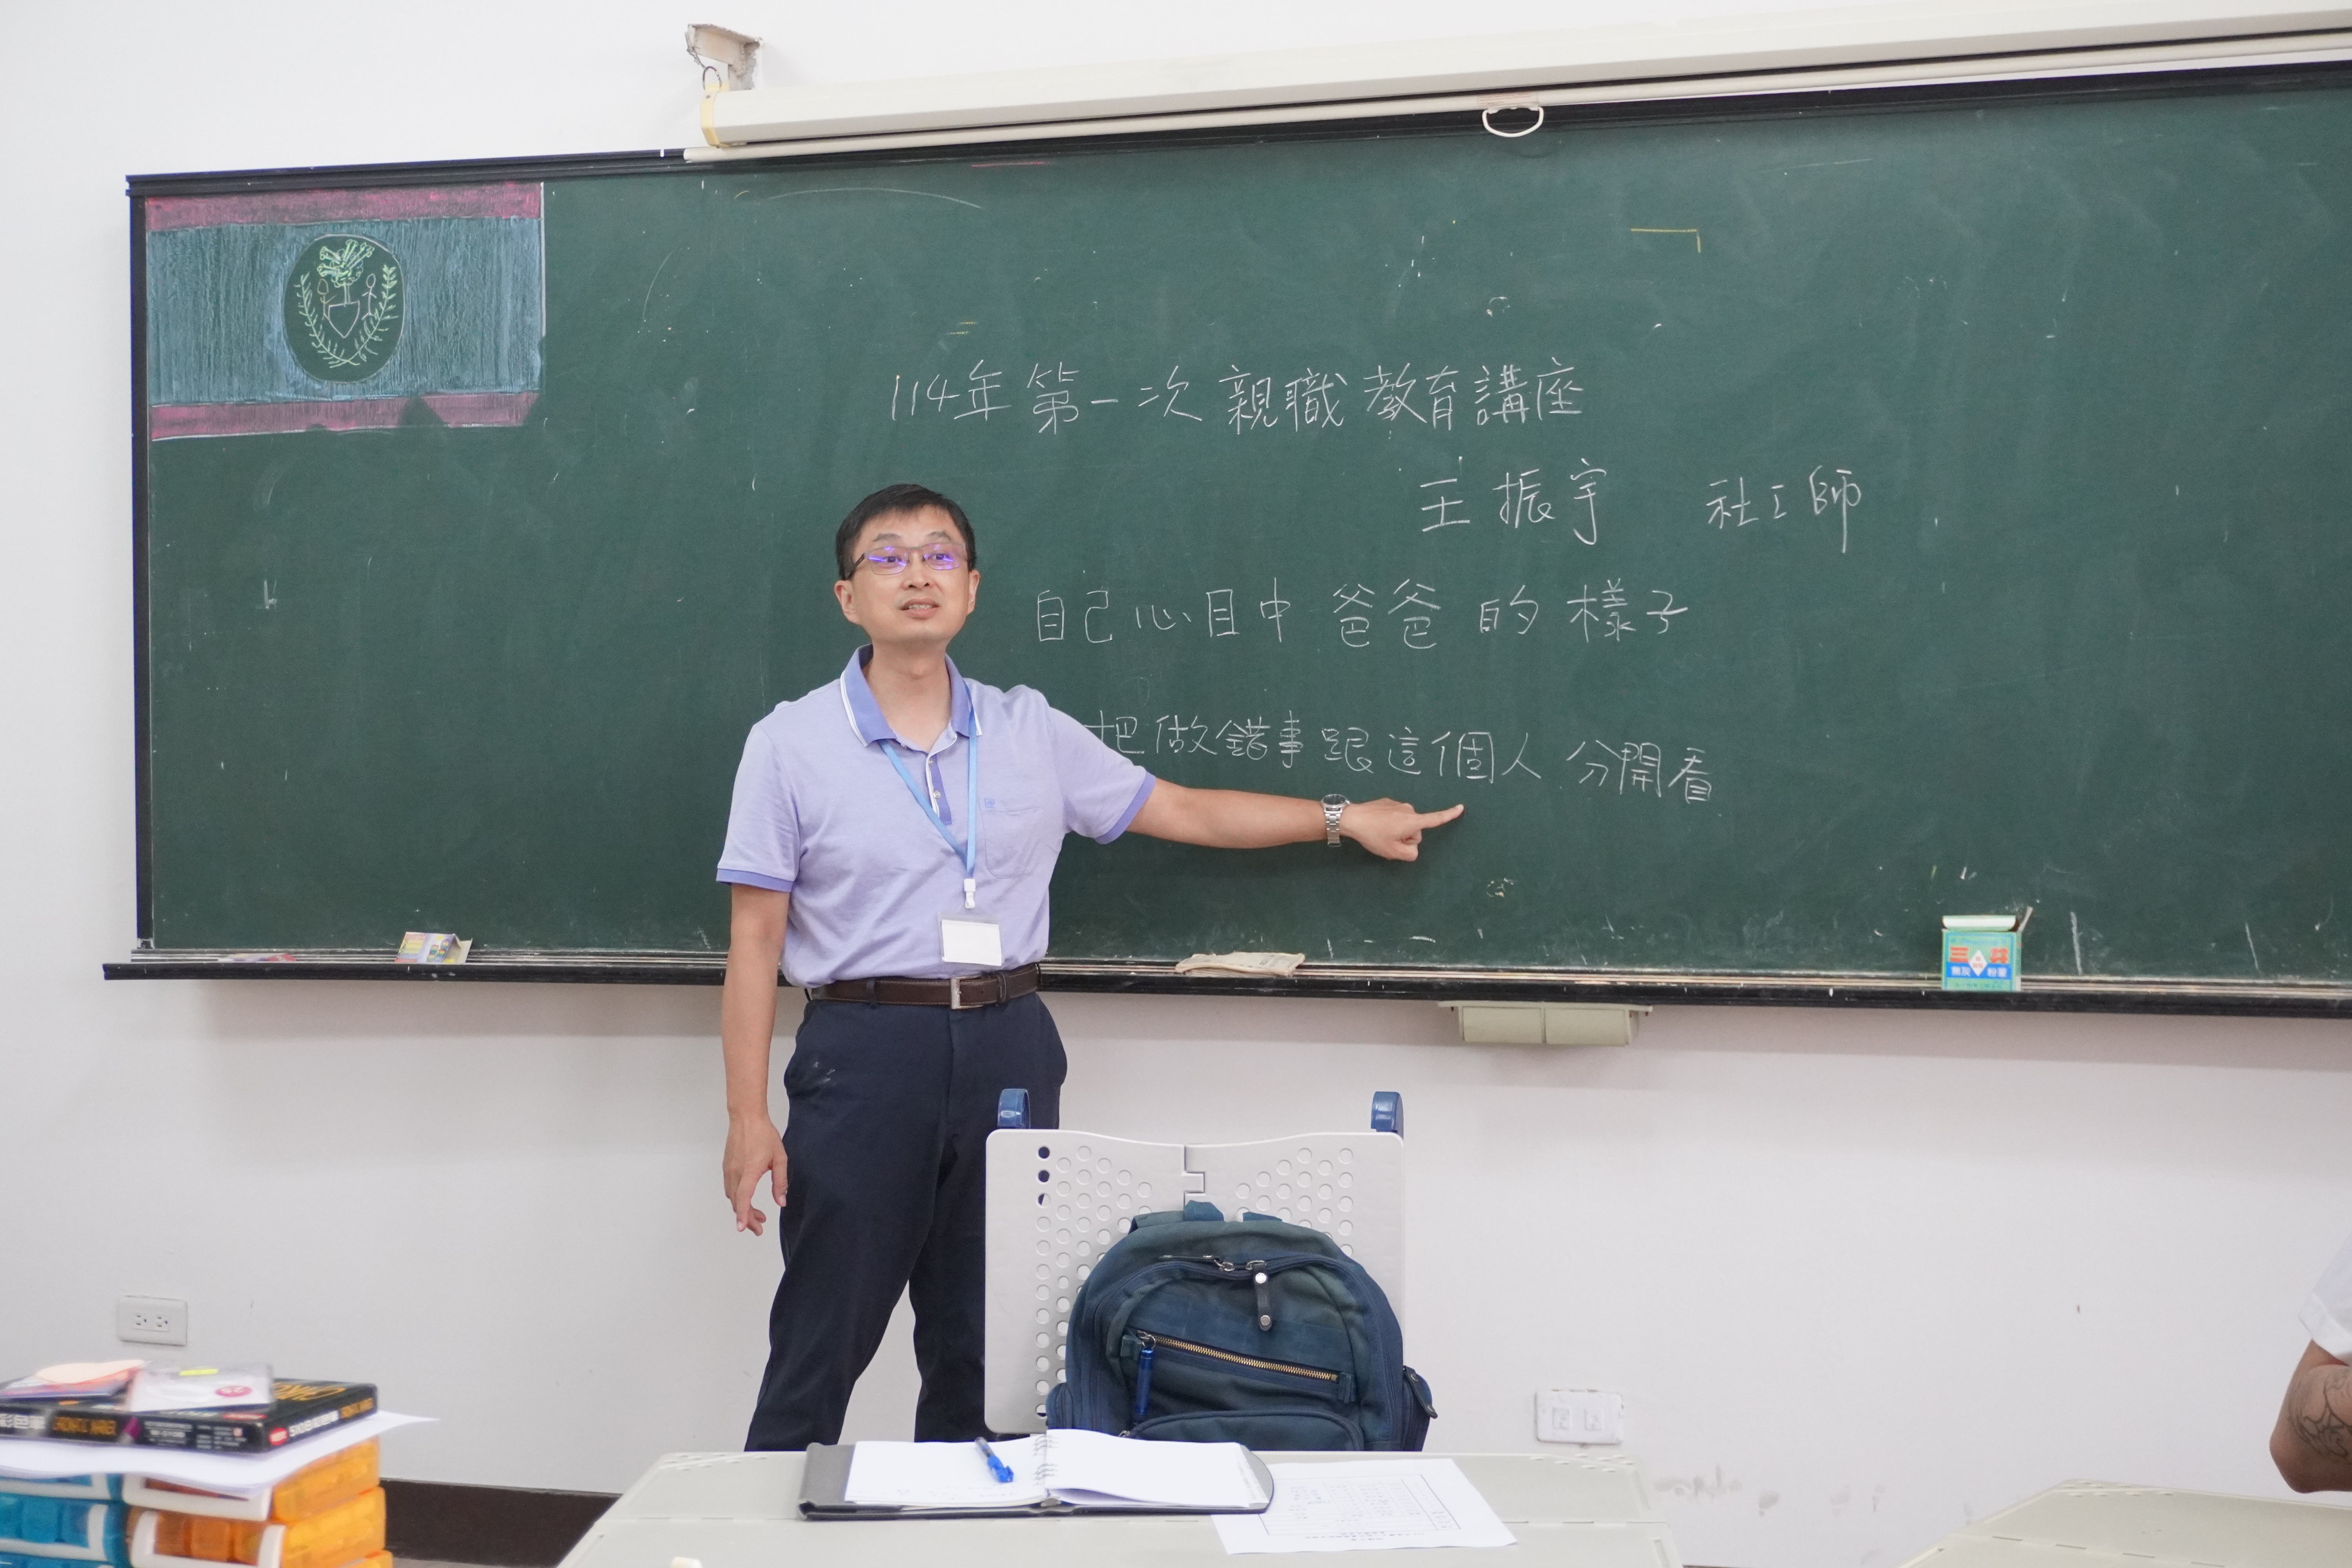 114年第一次親職教育講座
王振宇 社工師
自己心目中爸爸的樣子
把做錯事跟這個人分開看
三共
無灰 粉筆
彩色筆